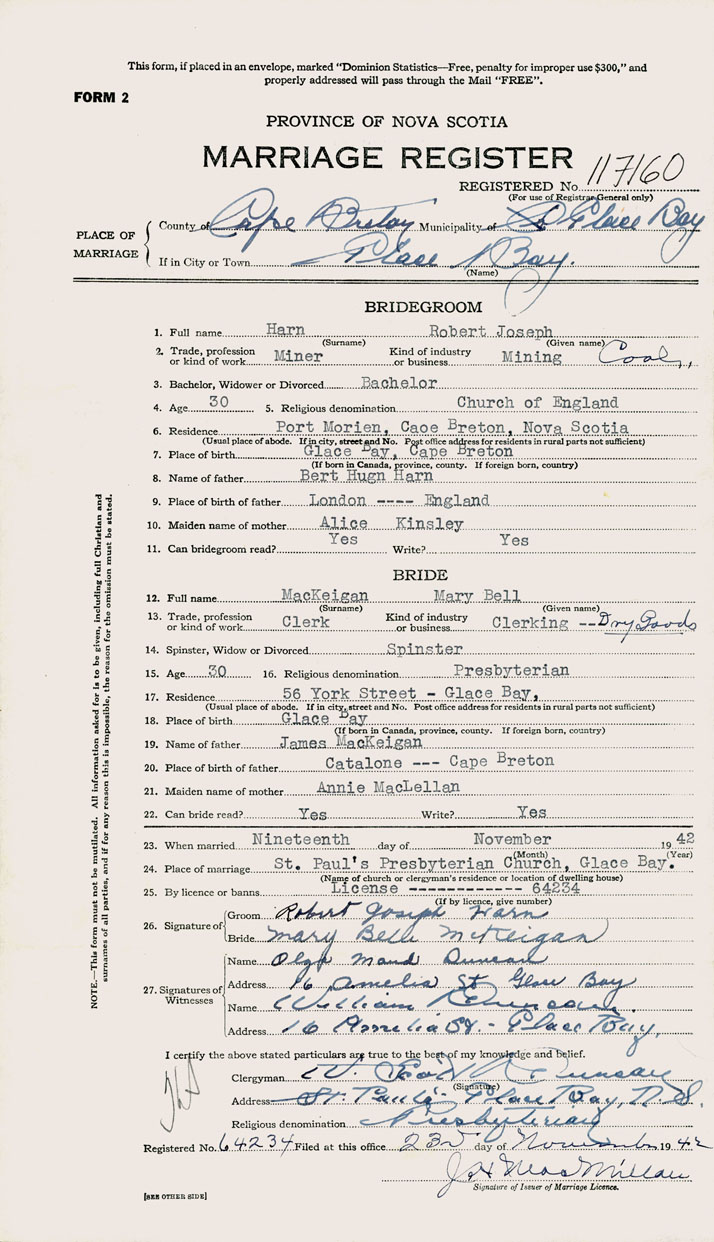 This form, if placed in an envelope, marked "Dominion Statistics—Free, penalty for improper use $300," and
properly addressed will pass through the Mail "FREE".
FORM 2
PROVINCE OF NOVA SCOTIA
MARRIAGE REGISTER
REGISTERED No. 117160
(For use of Registrar General only)
PLACE OF MARRIAGE
County of Cape Breton Municipality of Glace Bay
If in City or Town Glace Bay.
(Name)
BRIDEGROOM
1. Full name Harn Robert Joseph
(Surname) (Given name)
2. Trade, profession or kind of work Miner Kind of industry or business Mining Coal,
3. Bachelor, Widower or Divorced Bachelor
4. Age 30 5. Religious denomination Church of England
6. Residence Port Morien, Caoe Breton, Nova Scotia
(Usual place of abode. If in city, street and No. Post office address for residents in rural parts not sufficient)
7. Place of birth Glace Bay, Cape Breton
(If born in Canada, province, county. If foreign born, country)
8. Name of father Bert Hugn Harn
9. Place of birth of father London ---- England
10. Maiden name of mother Alice Kinsley
11. Can bridegroom read? Yes Write? Yes
BRIDE
12. Full name MacKeigan Mary Bell
(Surname) (Given name)
13. Trade, profession or kind of work Clerk Kind of industry or business Clerking --Dry Goods
14. Spinster, Widow or Divorced Spinster
15. Age 30 16. Religious denomination Presbyterian
17. Residence 56 York Street - Glace Bay,
(Usual place of abode. If in city, street and No. Post office address for residents in rural parts not sufficient)
18. Place of birth Glace Bay
(If born in Canada, province, county. If foreign born, country)
19. Name of father James MacKeigan
20. Place of birth of father Catalone --- Cape Breton
21. Maiden name of mother Annie MacLellan
22. Can bride read? Yes Write? Yes
23. When married Nineteenth day of November 19 42
(Month) (Year)
24. Place of marriage St. Paul's Presbyterian Church, Glace Bay.
(Name of church or clergyman's residence or location of dwelling house)
25. By licence or banns License ------------ 64234
(If by licence, give number)
26. Signature of
Groom Robert Joseph Harn
Bride Mary Belle McKeigan
27. Signatures of Witnesses
Name Olga Maud Duncan
Address 16 Amelia St Glace Bay
Name William
Address 16 Amelia St. - Glace Bay,
I certify the above stated particulars are true to the best of my knowledge and belief.
Clergyman W. Duncan
(Signature)
Address St. Paul's - Glace Bay, N.S.
Religious denomination Presbyterian
Registered No. 64234 Filed at this office 23 day of November 19 42
J H MacMillan
Signature of Issuer of Marriage Licence.
[SEE OTHER SIDE]
NOTE.—This form must not be mutilated. All information asked for is to be given, including full Christian and
surnames of all parties, and if for any reason this is impossible, the reason for the omission must be stated.